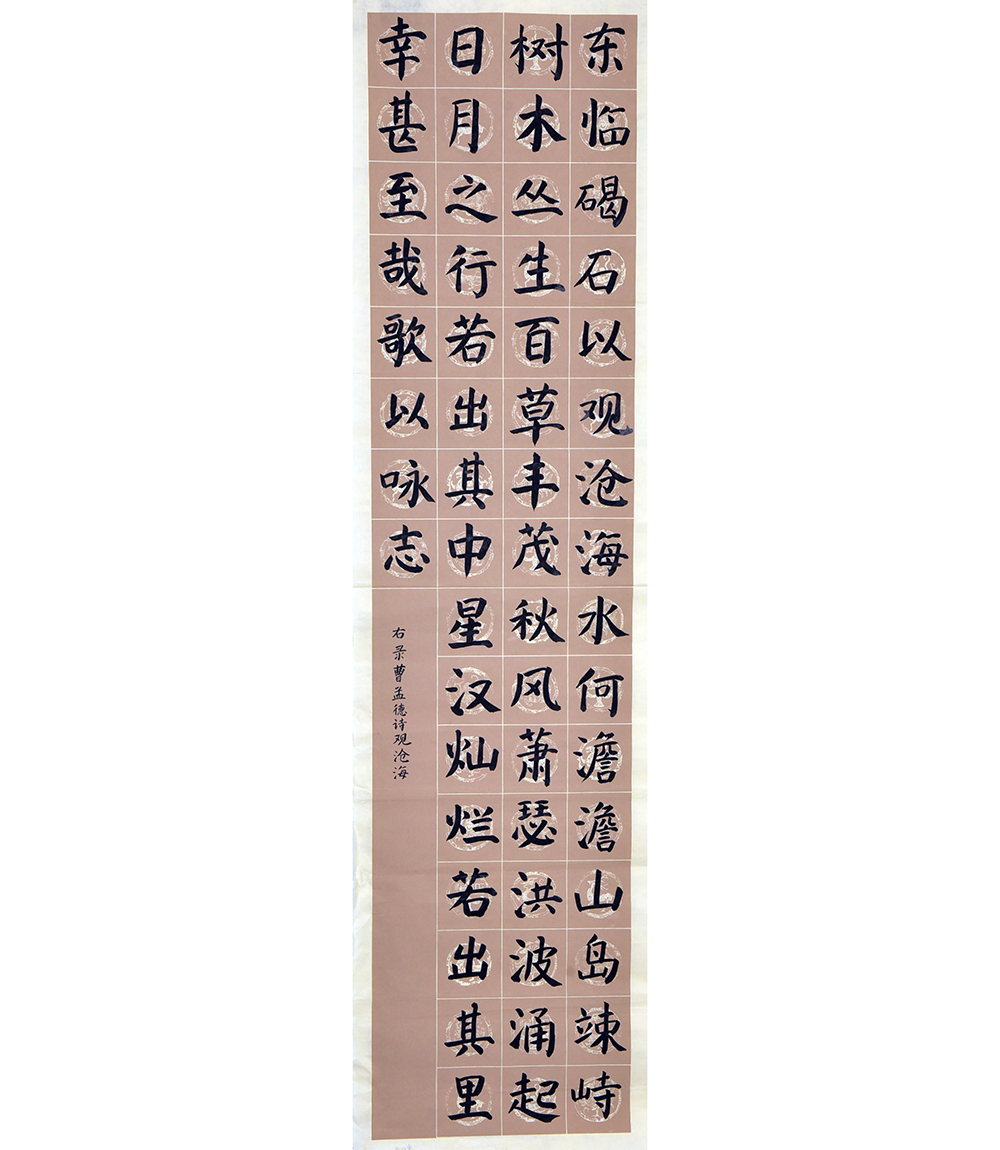 东临碣石以观沧海水何澹澹山岛竦峙
树木丛生百草丰茂秋风萧瑟洪波涌起
日月之行若出其中星汉灿烂若出其里
幸甚至哉歌以咏志
右录曹孟德诗观沧海